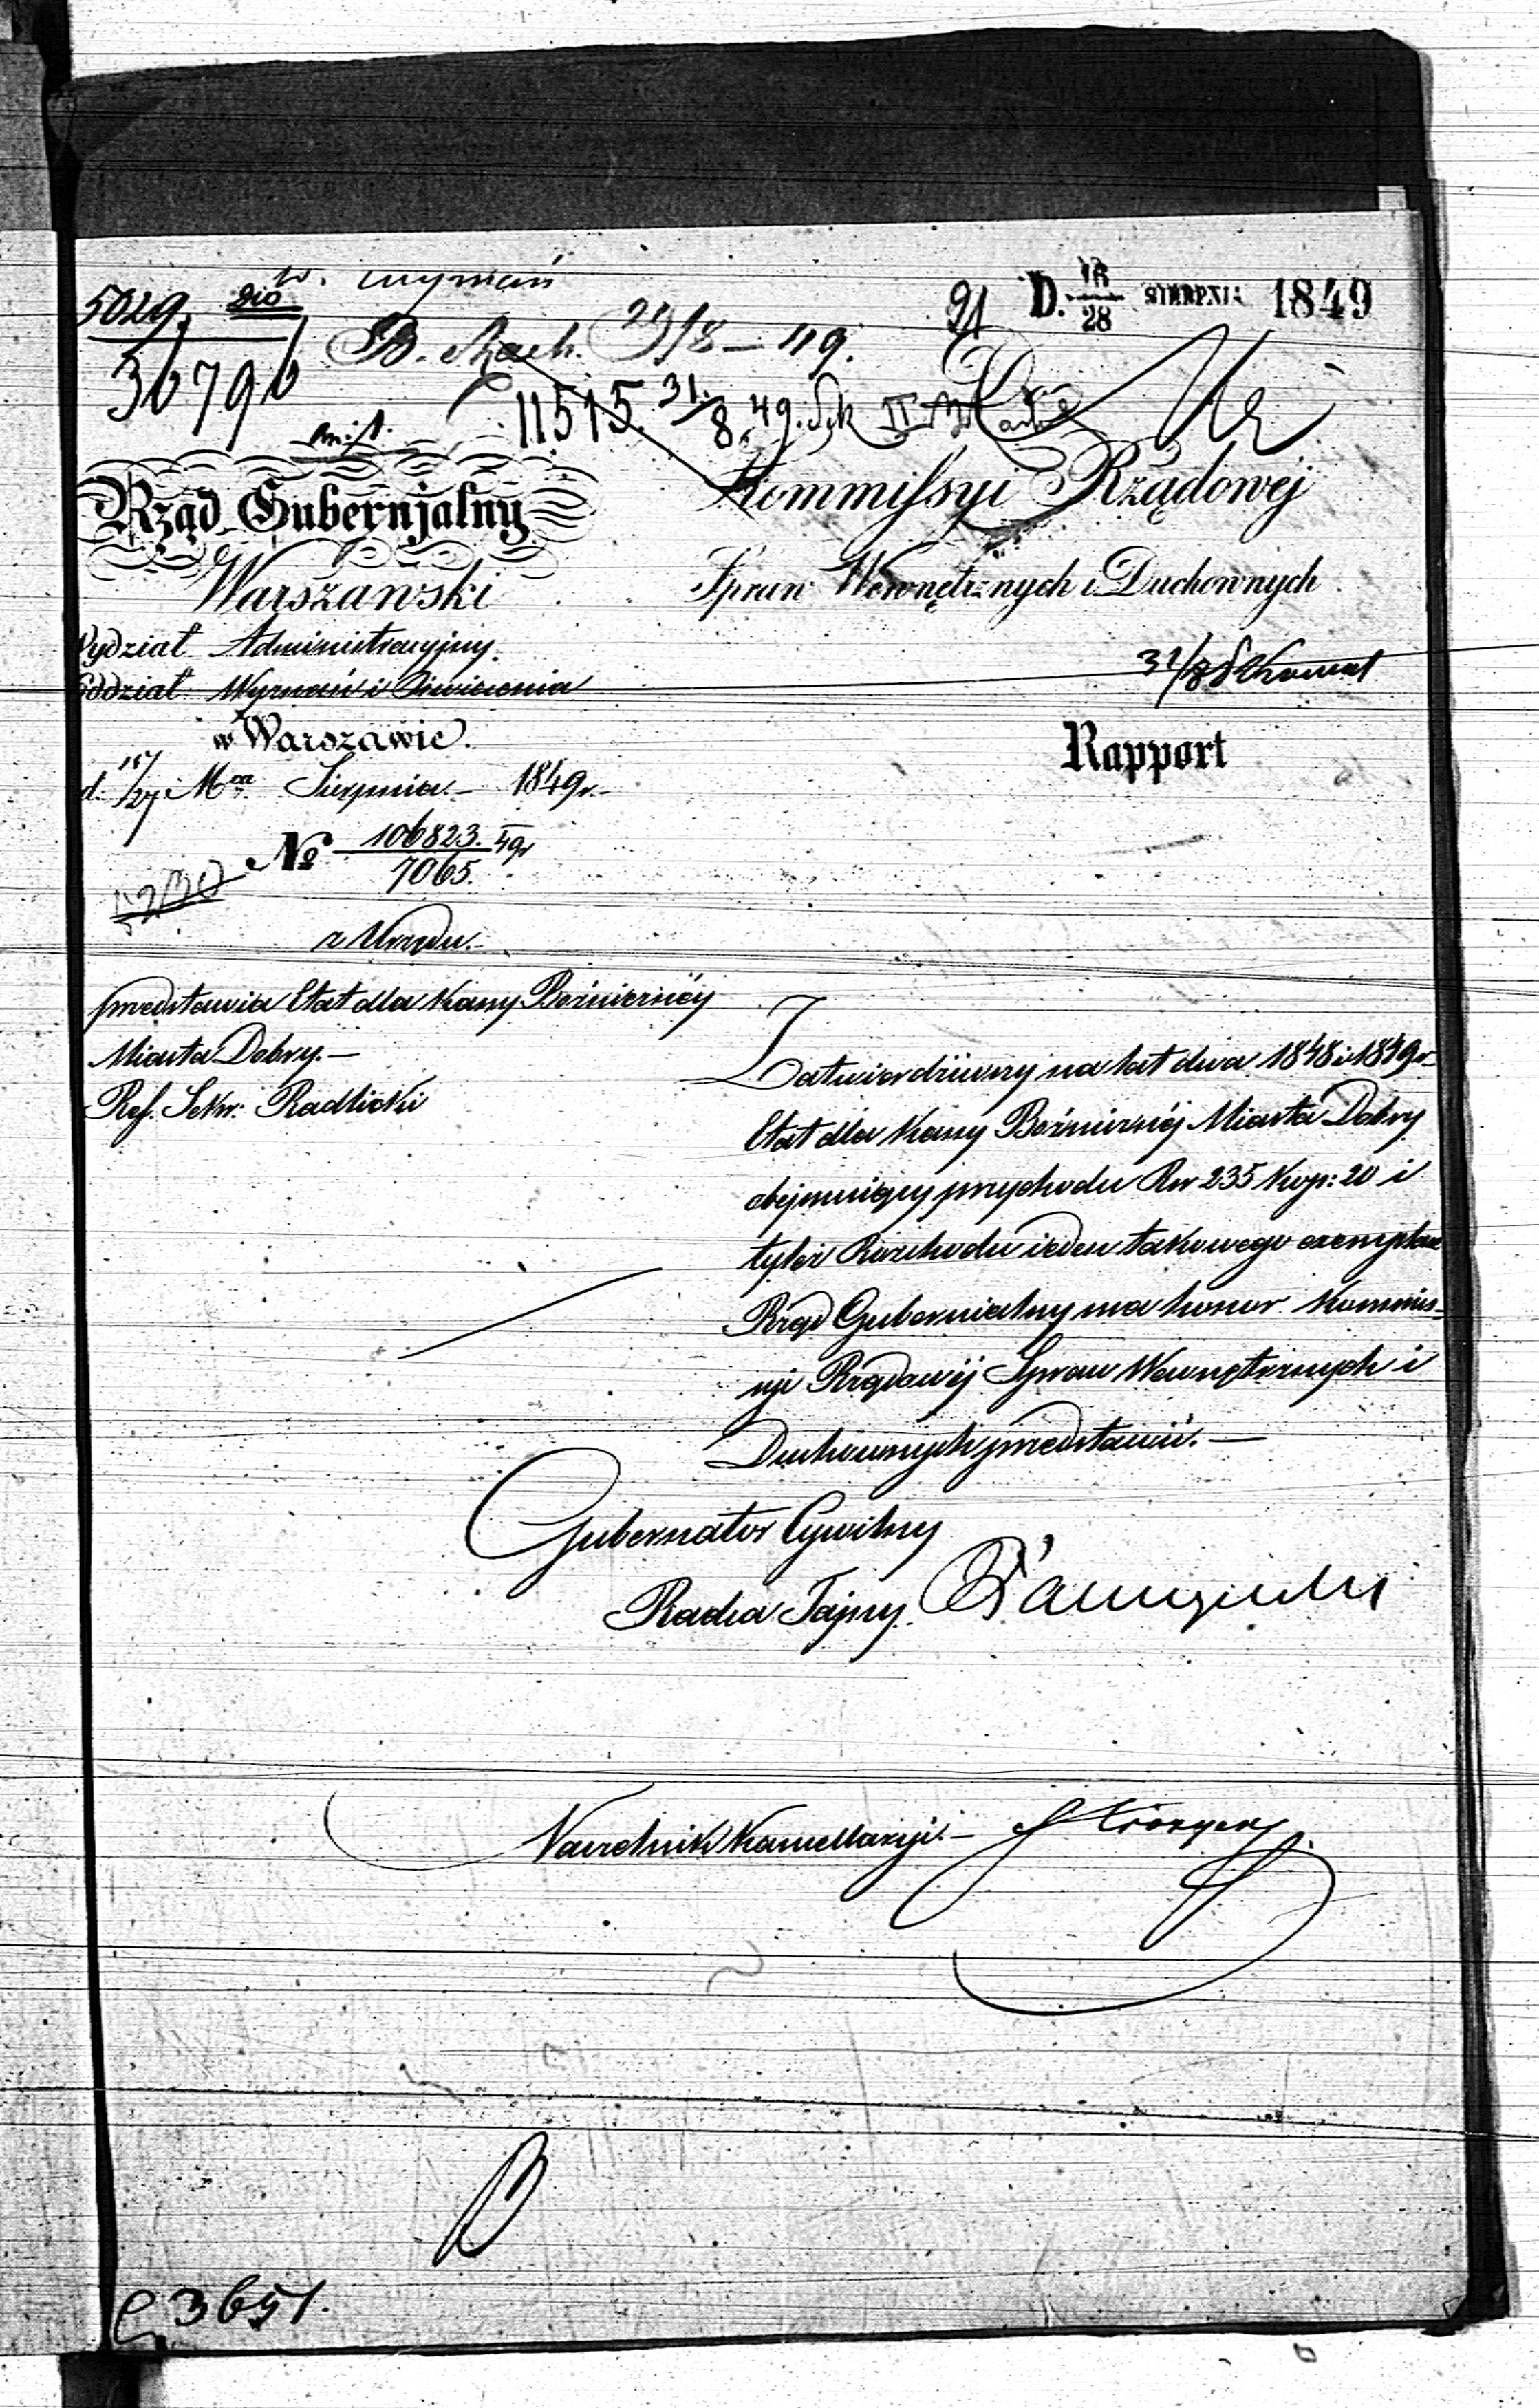 W. wyznań
5029 Dio
36796
B. Rach. 29/8 – 49.
91
D. 16/28 SIERPNIA 1849
11515. 31/8.49. Sek II
Rząd Gubernjalny
Warszawski
Wydział Administracyjny.
Oddział Wyznań i Oświecenia
w Warszawie.
d. 15/27 Mca Sierpnia – 1849r.
No 106823./7065. 49r
z Urzędu.
Kommissyi Rządowéj
Spraw Wewnętrznych i Duchownych
31/8
Rapport
przedstawia Etat dla Kassy Bóżniczéj
Miasta Dobry. –
Ref. Sekr: Radlicki
Zatwierdzony na lat dwa 1848 i 1849r
Etat dla Kassy Bóżniczéj Miasta Dobry
obejmujący przychodu Rsr 235 Kop: 20 i
tyleż Rozchodu ieden takowego exemplarz
Rząd Gubernialny ma honor Kommis-
syi Rządowéj Spraw Wewnętrznych i
Duchownych przedstawić. –
Gubernator Cywilny
Radca Tajny
Naczelnik Kancellaryi. –
3651.